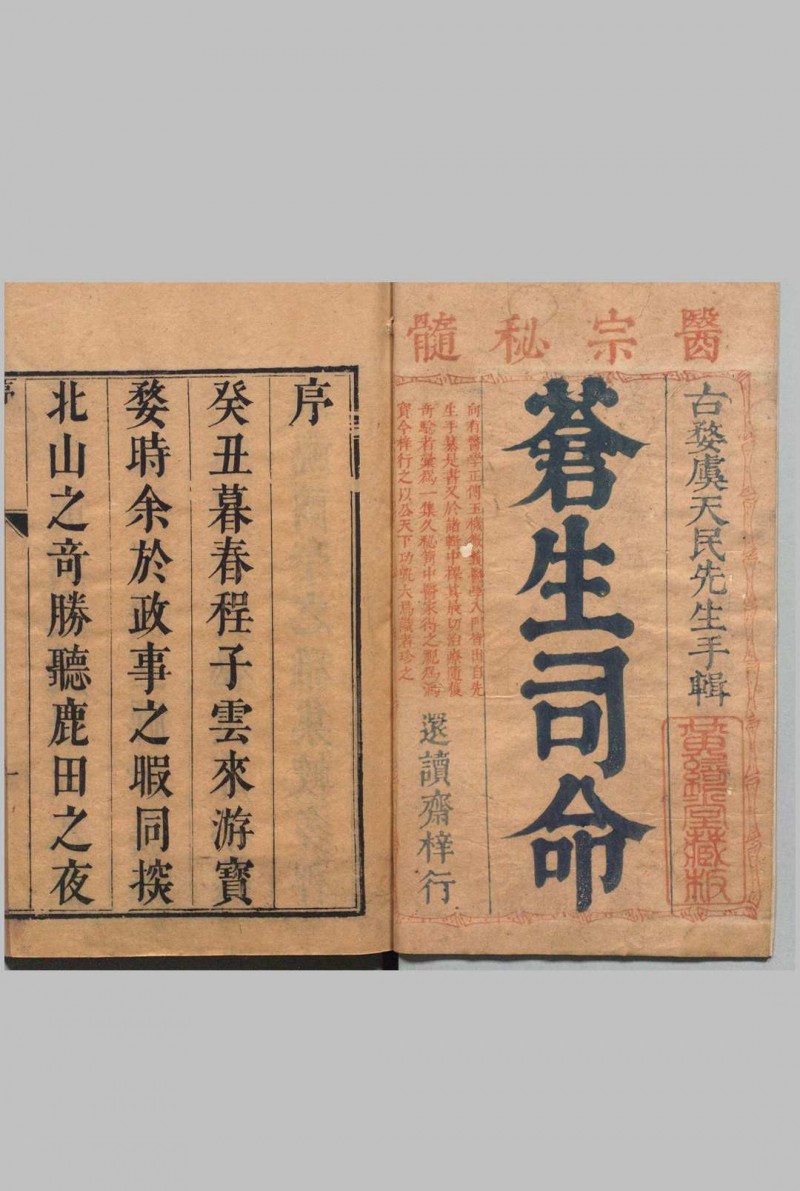 醫宗秘髓
古婺虞天民先生手輯
蒼生司命
向有醫學正傳玉機微義醫學入門皆出自先
生手纂是書又於諸輯中擇其最切治療隨儀
奇驗者彙為一集久秘笥中醫家得之親為
寶今梓行之以公天下功大焉識者珍之
還讀齋梓行
藏板
序
癸丑暮春程子雲來游寶
婺時余於政事之暇同揬
北山之奇勝聽鹿田之夜
序
一